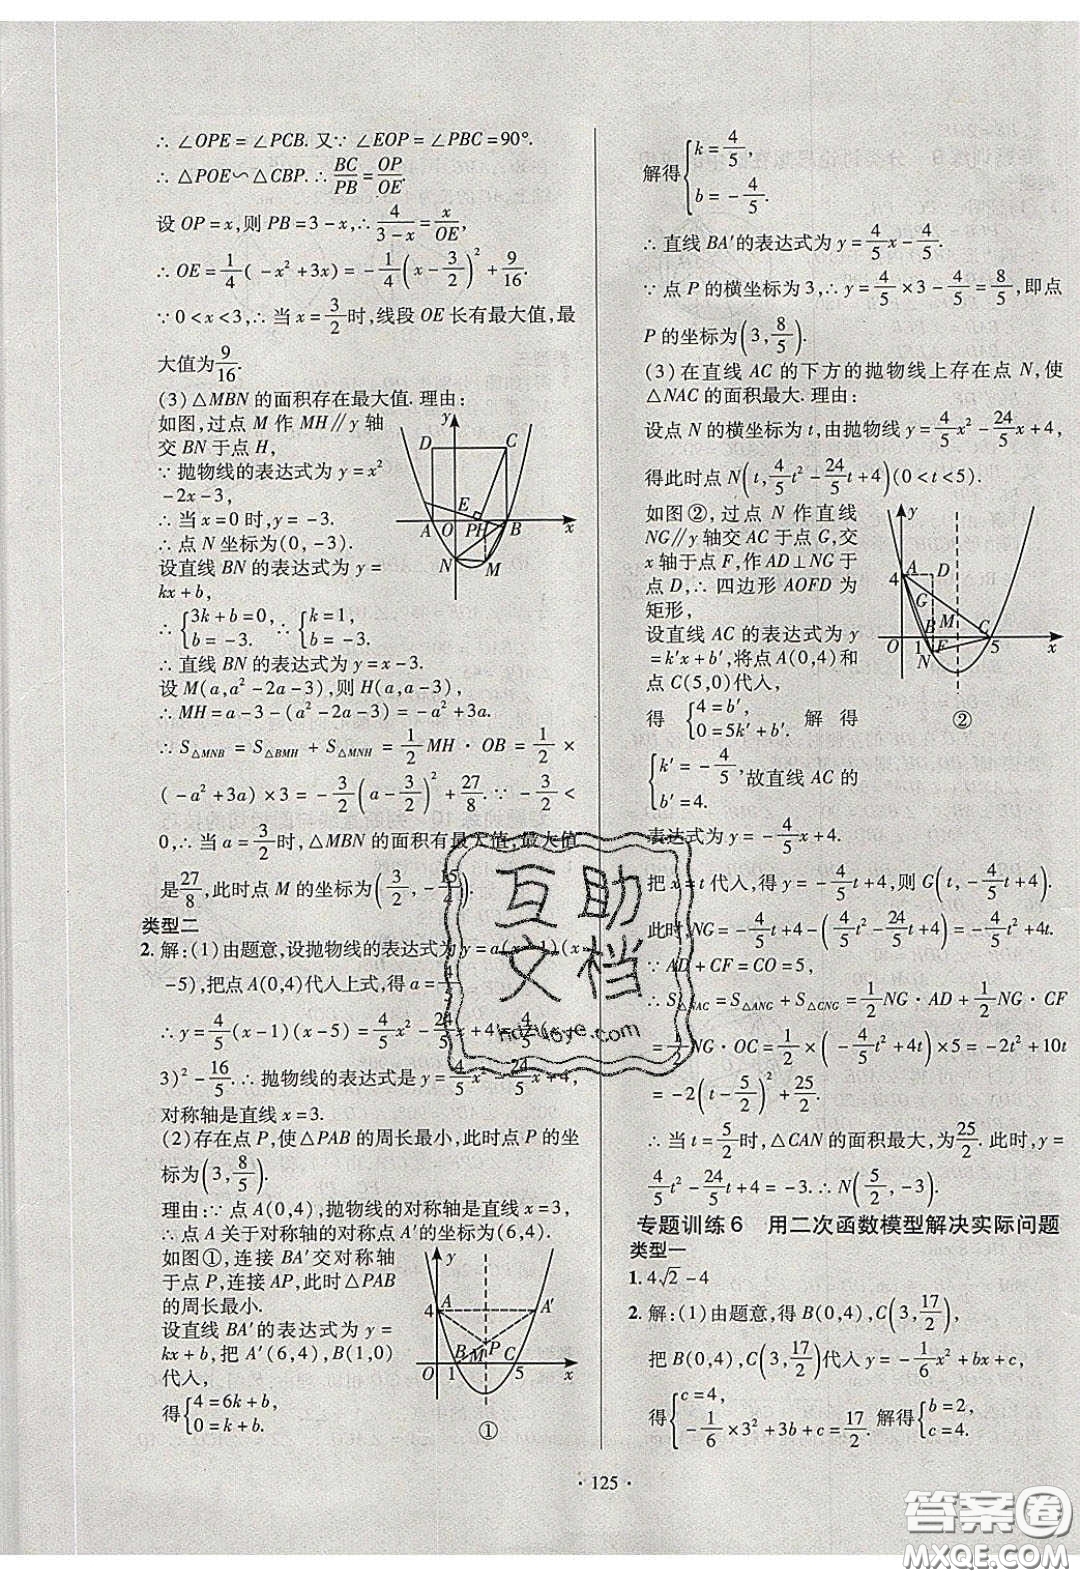 ∴ ∠OPE = ∠PCB. 又∵ ∠EOP = ∠PBC = 90°.
∴ △POE∽△CBP. ∴ BC/PB = OP/OE.
设 OP = x, 则 PB = 3 - x, ∴ 4/(3 - x) = x/OE,
∴ OE = 1/4(-x² + 3x) = -1/4(x - 3/2)² + 9/16.
∵ 0 < x < 3, ∴ 当 x = 3/2 时, 线段 OE 长有最大值, 最
大值为 9/16.
(3) △MBN 的面积存在最大值. 理由:
如图, 过点 M 作 MH∥y 轴
交 BN 于点 H,
∵ 抛物线的表达式为 y = x²
- 2x - 3,
∴ 当 x = 0 时, y = -3.
∴ 点 N 坐标为(0, -3).
设直线 BN 的表达式为 y =
kx + b,
∴ {3k + b = 0, b = -3. ∴ {k = 1, b = -3.
∴ 直线 BN 的表达式为 y = x - 3.
y D C E A O P H B x N M
设 M(a, a² - 2a - 3), 则 H(a, a - 3),
∴ MH = a - 3 - (a² - 2a - 3) = -a² + 3a.
∴ S△MNB = S△BMH + S△MNH = 1/2 MH · OB = 1/2 ×
(-a² + 3a) × 3 = -3/2(a - 3/2)² + 27/8. ∵ -3/2 <
0, ∴ 当 a = 3/2 时, △MBN 的面积有最大值, 最大值
是 27/8, 此时点 M 的坐标为(3/2, -15/4).
类型二
2. 解: (1) 由题意, 设抛物线的表达式为 y = a(x - 1)(x
- 5), 把点 A(0,4) 代入上式, 得 a = 4/5,
∴ y = 4/5(x - 1)(x - 5) = 4/5x² - 24/5x + 4 = 4/5(x -
3)² - 16/5. ∴ 抛物线的表达式是 y = 4/5x² - 24/5x + 4,
对称轴是直线 x = 3.
(2) 存在点 P, 使 △PAB 的周长最小, 此时点 P 的坐
标为(3, 8/5).
理由: ∵ 点 A(0,4), 抛物线的对称轴是直线 x = 3,
∴ 点 A 关于对称轴的对称点 A′ 的坐标为(6,4).
如图①, 连接 BA′ 交对称轴
于点 P, 连接 AP, 此时 △PAB
的周长最小.
设直线 BA′ 的表达式为 y =
kx + b, 把 A′(6,4), B(1,0)
代入,
得 {4 = 6k + b, 0 = k + b.
y 4 A A′ B M P C O 1 5 x
①
解得 {k = 4/5, b = -4/5.
∴ 直线 BA′ 的表达式为 y = 4/5x - 4/5.
∵ 点 P 的横坐标为 3, ∴ y = 4/5 × 3 - 4/5 = 8/5, 即点
P 的坐标为(3, 8/5).
(3) 在直线 AC 的下方的抛物线上存在点 N, 使
△NAC 的面积最大. 理由:
设点 N 的横坐标为 t, 由抛物线 y = 4/5x² - 24/5x + 4,
得此时点 N(t, 4/5t² - 24/5t + 4)(0 < t < 5).
如图②, 过点 N 作直线
NG∥y 轴交 AC 于点 G, 交
x 轴于点 F, 作 AD⊥NG 于
点 D, ∴ 四边形 AOFD 为
矩形,
设直线 AC 的表达式为 y
= k′x + b′, 将点 A(0,4) 和
点 C(5,0) 代入,
得 {4 = b′, 0 = 5k′ + b′. 解得
{k′ = -4/5, b′ = 4. 故直线 AC 的
表达式为 y = -4/5x + 4.
y 4 A D G B M C O 1 F 5 x N
②
把 x = t 代入, 得 y = -4/5t + 4, 则 G(t, -4/5t + 4).
此时, NG = -4/5t + 4 - (4/5t² - 24/5t + 4) = -4/5t² + 4t.
∵ AD + CF = CO = 5,
∴ S△NAC = S△ANG + S△CNG = 1/2 NG · AD + 1/2 NG · CF
= 1/2 NG · OC = 1/2 × (-4/5t² + 4t) × 5 = -2t² + 10t
= -2(t - 5/2)² + 25/2.
∴ 当 t = 5/2 时, △CAN 的面积最大, 为 25/2. 此时, y =
4/5t² - 24/5t + 4 = -3. ∴ N(5/2, -3).
专题训练 6 用二次函数模型解决实际问题
类型一
1. 4√2 - 4
2. 解: (1) 由题意, 得 B(0,4), C(3, 17/2),
把 B(0,4), C(3, 17/2) 代入 y = -1/6x² + bx + c,
得 {c = 4, -1/6 × 3² + 3b + c = 17/2. 解得 {b = 2, c = 4.
· 125 ·
互助
文档
hdzuoye.com
答案圈
MXQE.COM